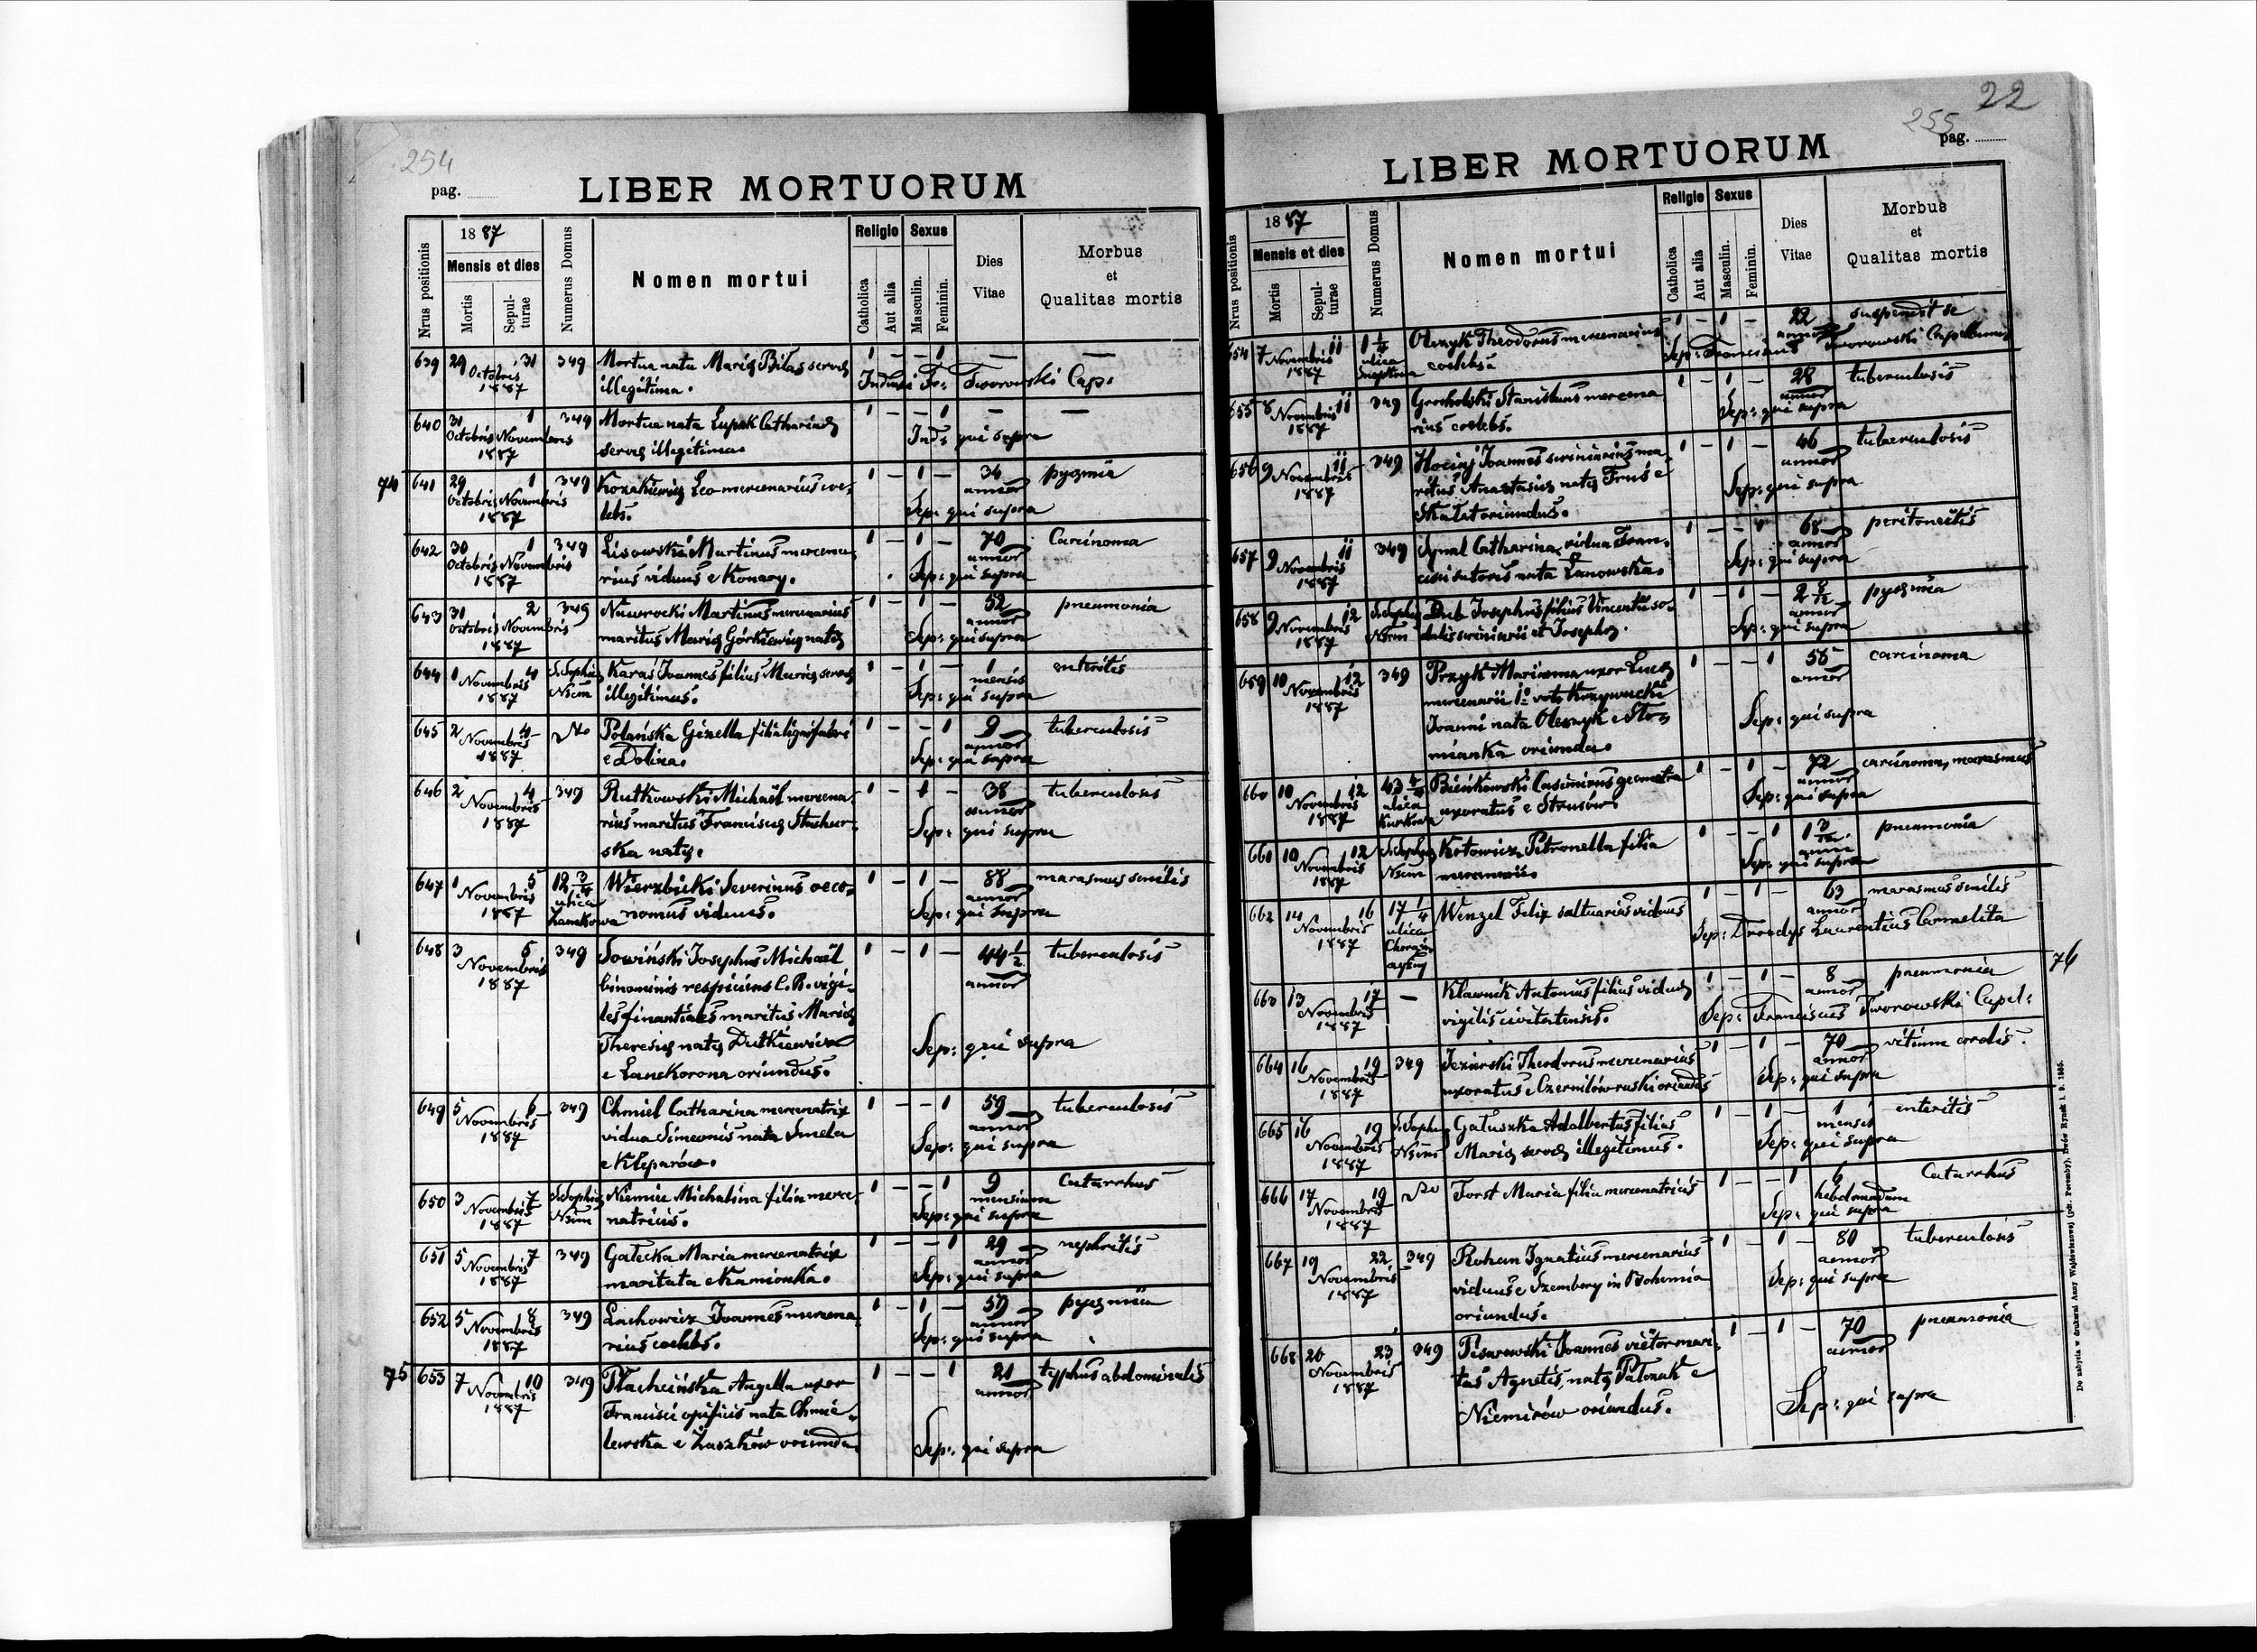 254
pag.
LIBER MORTUORUM
Nrus positionis
1887
Mensis et dies
Mortis
Sepul-
turae
Numerus Domus
Nomen mortui
Religio
Catholica
Aut alia
Sexus
Masculin.
Feminin.
Dies
Vitae
Morbus
et
Qualitas mortis
639 29 31 349 Mortua nata Mariæ Bilas servæ 1 — — 1 — —
Octobris
1887
illegitima. Tworowski Cap.
640 31 1 349 Mortua nata Łupak Catharinæ 1 — — 1 — —
Octobris Novembris
1887
servæ illegitima. Ind: qui supra
74
641 29 1 349 Kozakiewicz Leo mercenarius coe- 1 — 1 — 34 pyæmia
Octobris Novembris annor
1887
lebs. Sep: qui supra
642 30 1 349 Lisowski Martinus mercena- 1 — 1 — 70 Carcinoma
Octobris Novembris annor
1887
rius viduus e Konary. Sep: qui supra
643 31 2 349 Nawrocki Martinus mercenarius 1 — 1 — 52 pneumonia
Octobris Novembris annor
1887
maritus Mariæ Górkiewicz natæ Sep: qui supra
644 1 4 S. Sophiæ Karaś Joannes filius Mariæ servæ 1 — 1 — 1 enteritis
Novembris Nsum mensis
1887
illegitimus. Sep: qui supra
645 2 4 Polańska Gizella filia lignifabri 1 — — 1 9 tuberculosis
Novembris annor
1887
e Dolina. Sep: qui supra
646 2 4 349 Rutkowski Michaël mercena- 1 — 1 — 38 tuberculosis
Novembris annor
1887
rius maritus Franciscæ Stachur- Sep: qui supra
ska natæ.
647 1 5 12 3/4 Wierzbicki Severinus oeco- 1 — 1 — 88 marasmus senilis
Novembris ulica annor
1887 Zamkowa
nomus viduus. Sep: qui supra
648 3 5 349 Sowiński Josephus Michaël 1 — 1 — 44 1/2 tuberculosis
Novembris annor
1887
binominis respiciens C. R. vigi-
les finantiales maritus Mariæ
Theresiæ natæ Dutkiewicz Sep: qui supra
e Lanckorona oriundus.
649 5 6 349 Chmiel Catharina mercenatrix 1 — — 1 59 tuberculosis
Novembris annor
1887
vidua Simeonis nata Smela Sep: qui supra
e Kleparów.
650 3 7 S. Sophiæ Niemiec Michalina filia merce- 1 — — 1 9 Catarrhus
Novembris Nsum mensium
1887
natricis. Sep: qui supra
651 5 7 349 Gałecka Maria mercenatrix 1 — — 1 29 nephritis
Novembris annor
1887
maritata e Kamionka. Sep: qui supra
652 5 8 349 Lachowicz Joannes mercena- 1 — 1 — 59 pyæmia
Novembris annor
1887
rius coelebs. Sep: qui supra
75
653 7 10 349 Płachcińska Angella uxor 1 — — 1 21 typhus abdominalis
Novembris annor
1887
Francisci opificis nata Chmie-
lewska e Żaszków oriunda Sep: qui supra
22
255
pag.
LIBER MORTUORUM
Nrus positionis
1887
Mensis et dies
Mortis
Sepul-
turae
Numerus Domus
Nomen mortui
Religio
Catholica
Aut alia
Sexus
Masculin.
Feminin.
Dies
Vitae
Morbus
et
Qualitas mortis
654 7 11 ulica Olexyk Theodorus mercenarius 1 — 1 — 22 suspendit se
Novembris annor
1887
coelebs. Sep: Franciscus Tworowski Capellanus
655 8 11 349 Grocholski Stanislaus mercena 1 — 1 — 28 tuberculosis
Novembris annor
1887
rius coelebs. Sep: qui supra
656 9 11 349 Hociaj Joannes scriniarius ma- 1 — 1 — 46 tuberculosis
Novembris annor
1887
ritus Anastasiæ natæ Fruś e Sep: qui supra
Skałat oriundus.
657 9 11 349 Synal Catharina vidua Fran- 1 — — 1 68 peritoneitis
Novembris annor
1887
cisci sutoris nata Łanowska. Sep: qui supra
658 9 12 S. Sophiæ Dub Josephus filius Vincentii so- 1 — 1 — 2 8/12 pyæmia
Novembris Nsum annor
1887
dalis scriniarii et Josephæ. Sep: qui supra
659 10 12 349 Przyk Marianna uxor Lucæ 1 — — 1 58 carcinoma
Novembris annor
1887
mercenarii 1o voto Krzywucki
Joanni nata Olexyk e Sto- Sep: qui supra
mianka oriunda.
660 10 12 43 4/4 Bieńkowski Casimirus geometra 1 — 1 — 72 carcinoma, marasmus
Novembris ulica annor
1887 Kurkowa
uxoratus e Strusów. Sep: qui supra
661 10 12 S. Sophiæ Kotowicz Petronella filia 1 — — 1 1 3/12 pneumonia
Novembris Nsum anni
1887
mercenarii. Sep: qui supra
662 14 16 17 1/4 Wenzel Felix saltuarius viduus 1 — 1 — 63 marasmus senilis
Novembris ulica annor
1887 Sep: Drozdys Laurentius Carmelita
76
663 13 17 — Kławnik Antonius filius viduæ 1 — 1 — 8 pneumonia
Novembris annor
1887
vigilis civitatensis. Sep: Franciscus Tworowski Capel:
664 16 19 349 Jezierski Theodorus mercenarius 1 — 1 — 70 vitium cordis.
Novembris annor
1887
uxoratus e Czernilów ruski oriundus Sep: qui supra
665 16 19 S. Sophiæ Gałuszka Adalbertus filius 1 — 1 — 1 enteritis
Novembris Nsum mensis
1887
Mariæ servæ illegitimus. Sep: qui supra
666 17 19 Forst Maria filia mercenatricis 1 — — 1 6 Catarrhus
Novembris hebdomadum
1887 Sep: qui supra
667 19 22 349 Rohan Ignatius mercenarius 1 — 1 — 80 tuberculosis
Novembris annor
1887
viduus e Szemberg in Bohemia Sep: qui supra
oriundus.
668 20 23 349 Pisarowski Joannes vietor mari- 1 — 1 — 70 pneumonia
Novembris annor
1887
tus Agnetis, natæ Patonak e
Niemirów oriundus. Sep: qui supra
Do nabycia w drukarni Anny Wajdowiczowej (pdt. Poremby), Lwów Rynek l. 9. 1885.